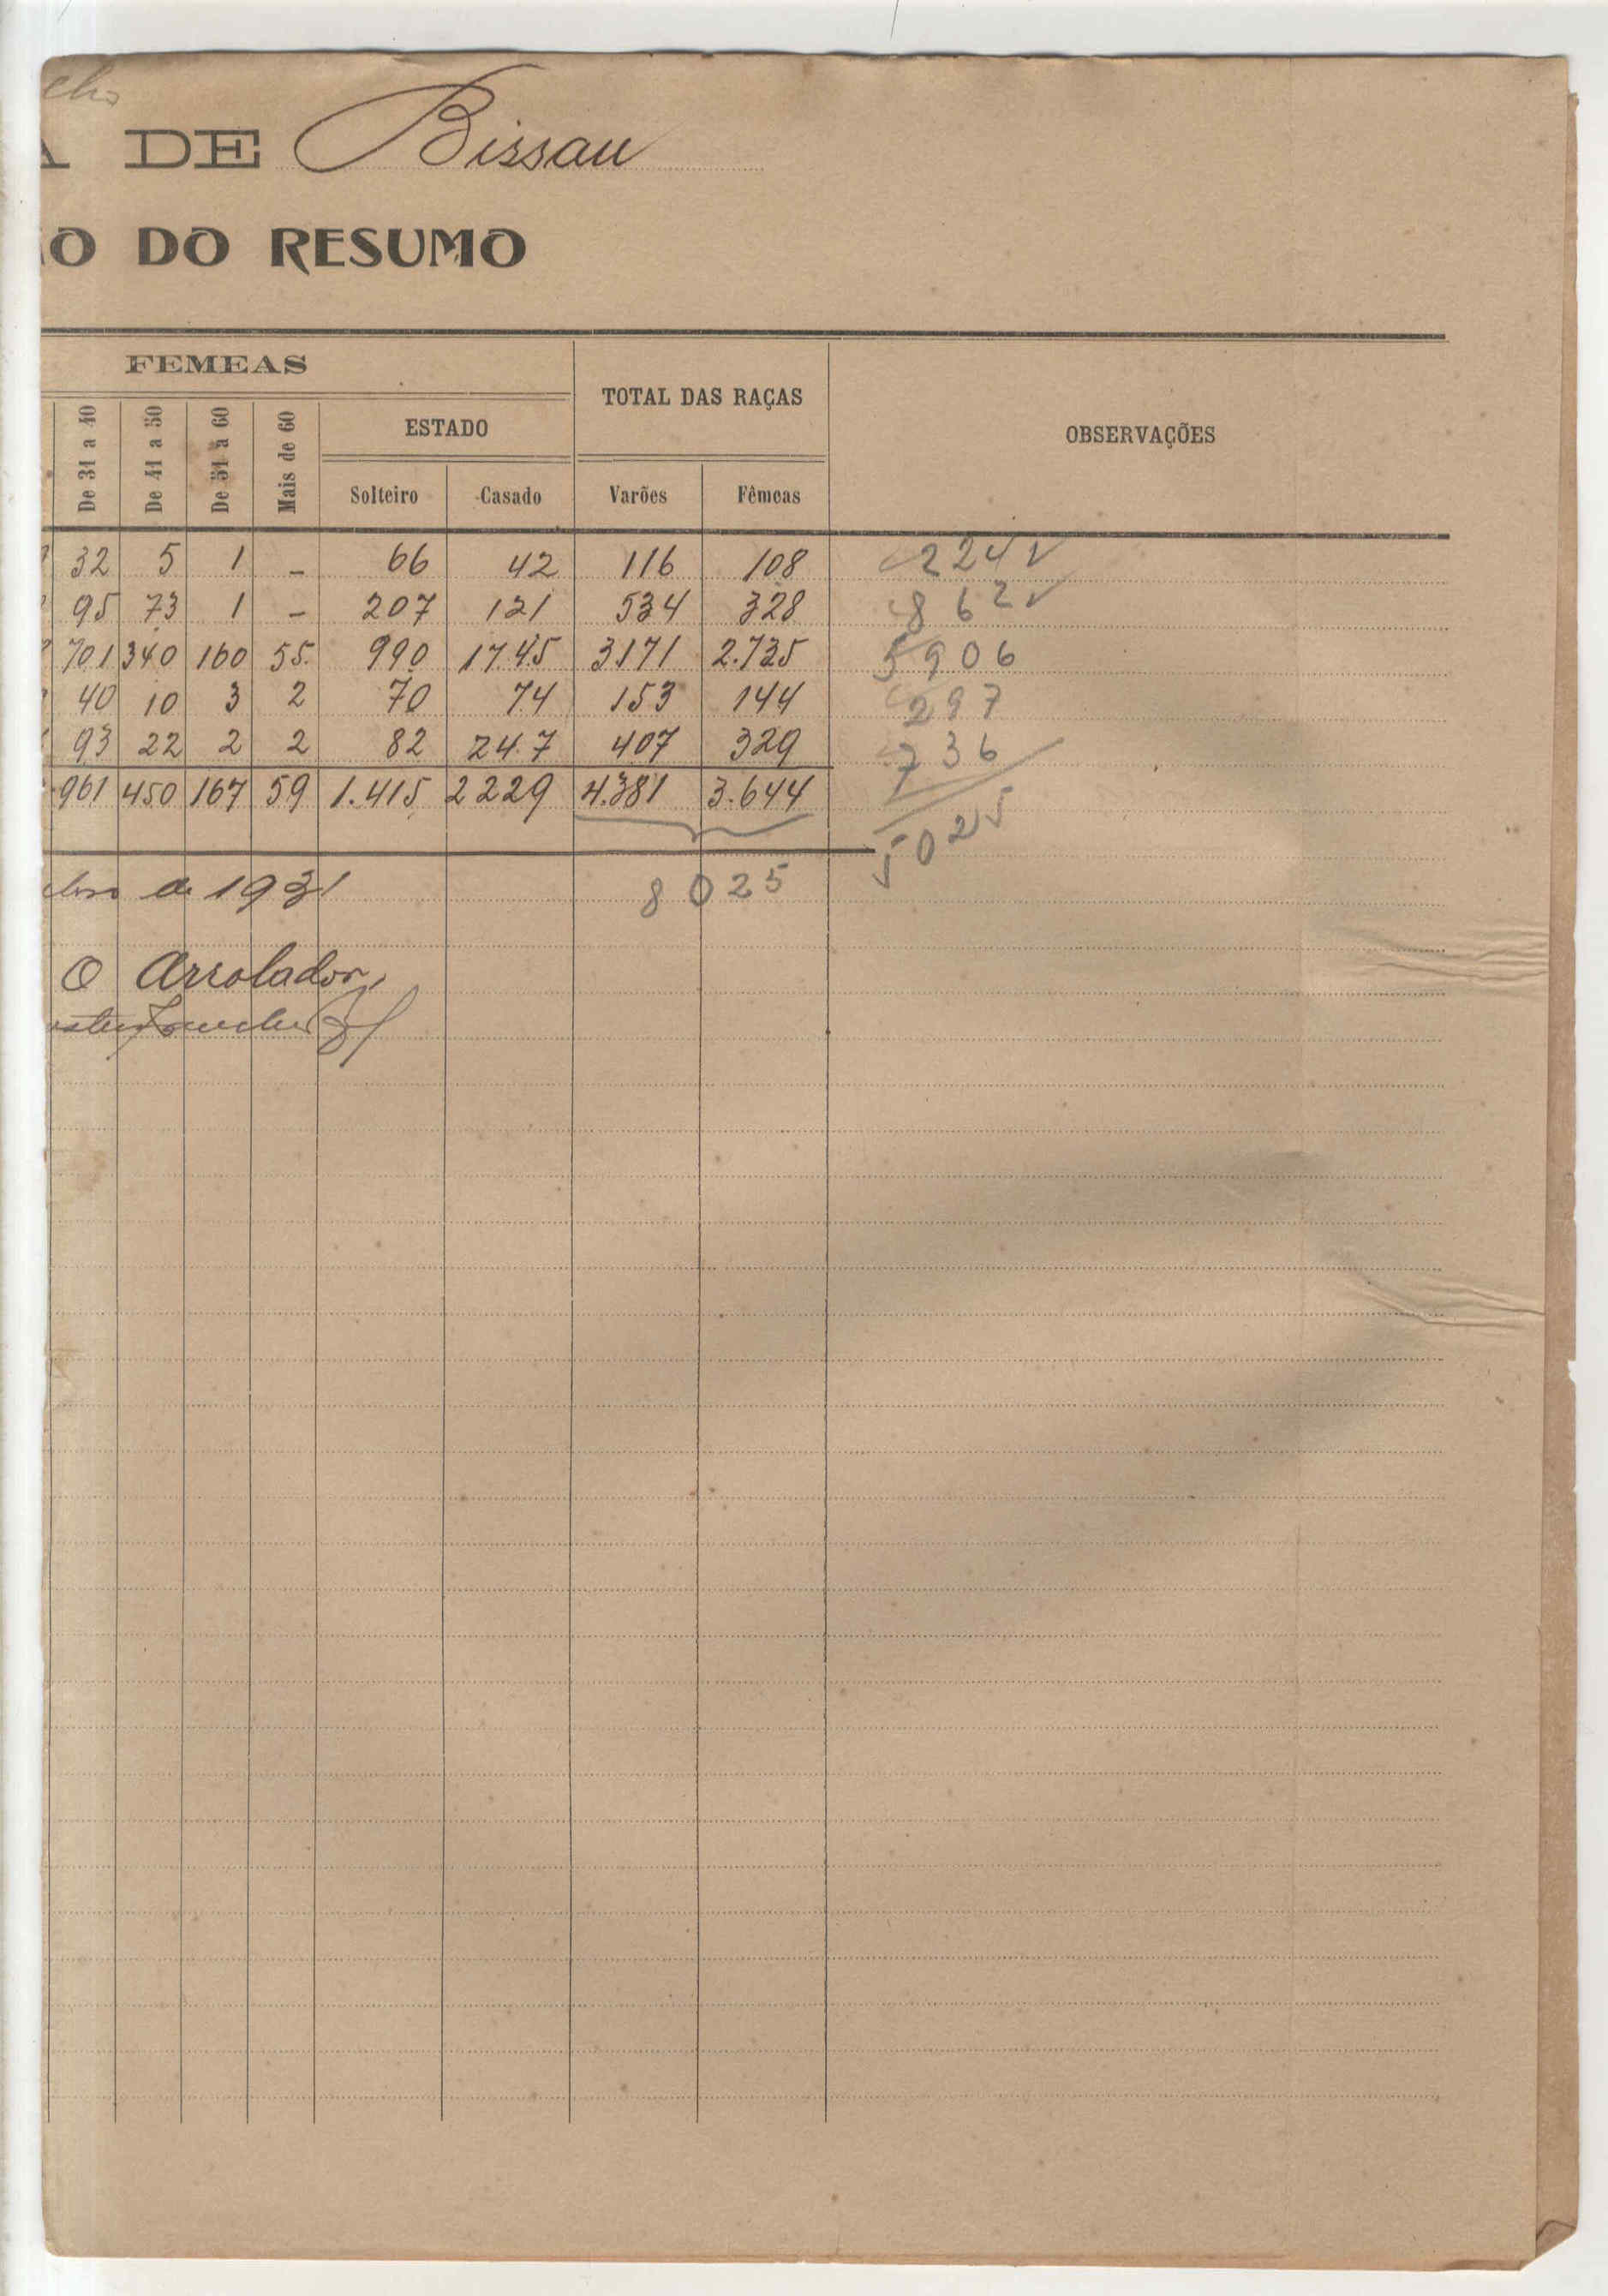 elho
A DE Bissau
ÃO DO RESUMO
FEMEAS TOTAL DAS RAÇAS OBSERVAÇÕES
De 31 a 40 De 41 a 50 De 51 a 60 Mais de 60 ESTADO
Solteiro Casado Varões Fêmeas
32 5 1 – 66 42 116 108 224 ✓
95 73 1 – 207 121 534 328 862 ✓
701 340 160 55 990 1745 3171 2.735 5906
40 10 3 2 70 74 153 144 297
93 22 2 2 82 247 407 329 736
961 450 167 59 1.415 2229 4.381 3.644
5025
de 1931 8025
O Arrolador,